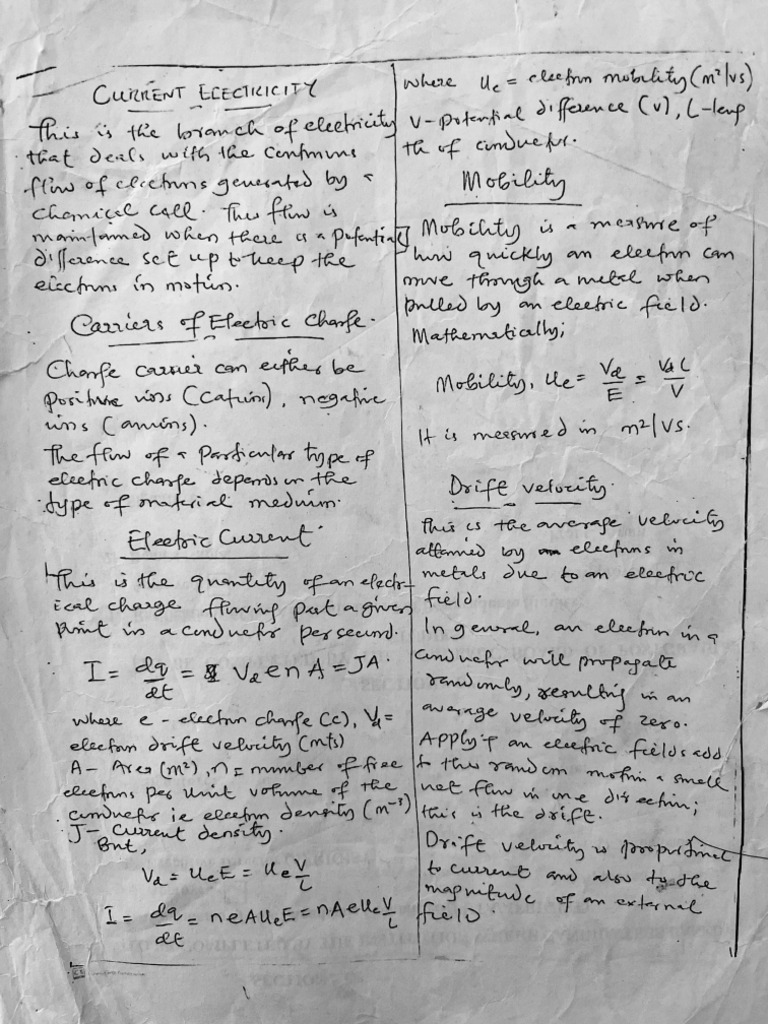 CURRENT ELECTRICITY
This is the branch of electricity
that deals with the continuous
flow of electrons generated by a
chemical cell. This flow is
maintained when there is a potential
difference set up to keep the
electrons in motion.
Carriers of Electric Charge.
Charge carrier can either be
positive ions (cations), negative
ions (anions).
The flow of a particular type of
electric charge depends on the
type of material medium.
Electric Current
This is the quantity of an electr-
ical charge flowing past a given
point in a conductor per second.
I = dq/dt = VdenA = JA.
where e - electron charge (c), Vd =
electron drift velocity (m/s)
A - Area (m²), n = number of free
electrons per unit volume of the
conductor ie electron density (m⁻³)
J - Current density.
But,
Vd = UeE = Ue V/L
I = dq/dt = neAUeE = nAeUe V/L
where Ue = electron mobility (m²/vs)
V - Potential difference (v), L - leng
th of conductor.
Mobility
Mobility is a measure of
how quickly an electron can
move through a metal when
pulled by an electric field.
Mathematically;
Mobility, Ue = Vd/E = VdL/V
It is measured in m²/Vs.
Drift velocity
This is the average velocity
attained by electrons in
metals due to an electric
field.
In general, an electron in a
conductor will propagate
randomly, resulting in an
average velocity of zero.
Applying an electric fields add
to this random motion a small
net flow in one direction;
this is the drift.
Drift velocity is proportional
to current and also to the
magnitude of an external
field.